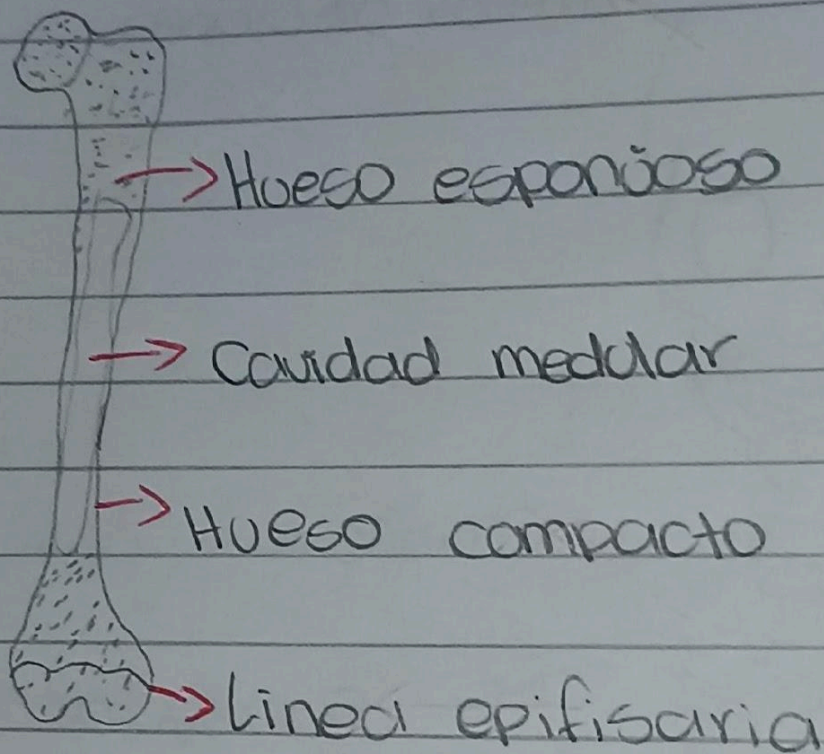 Hueso esponjoso
Cavidad medular
Hueso compacto
Linea epifisaria